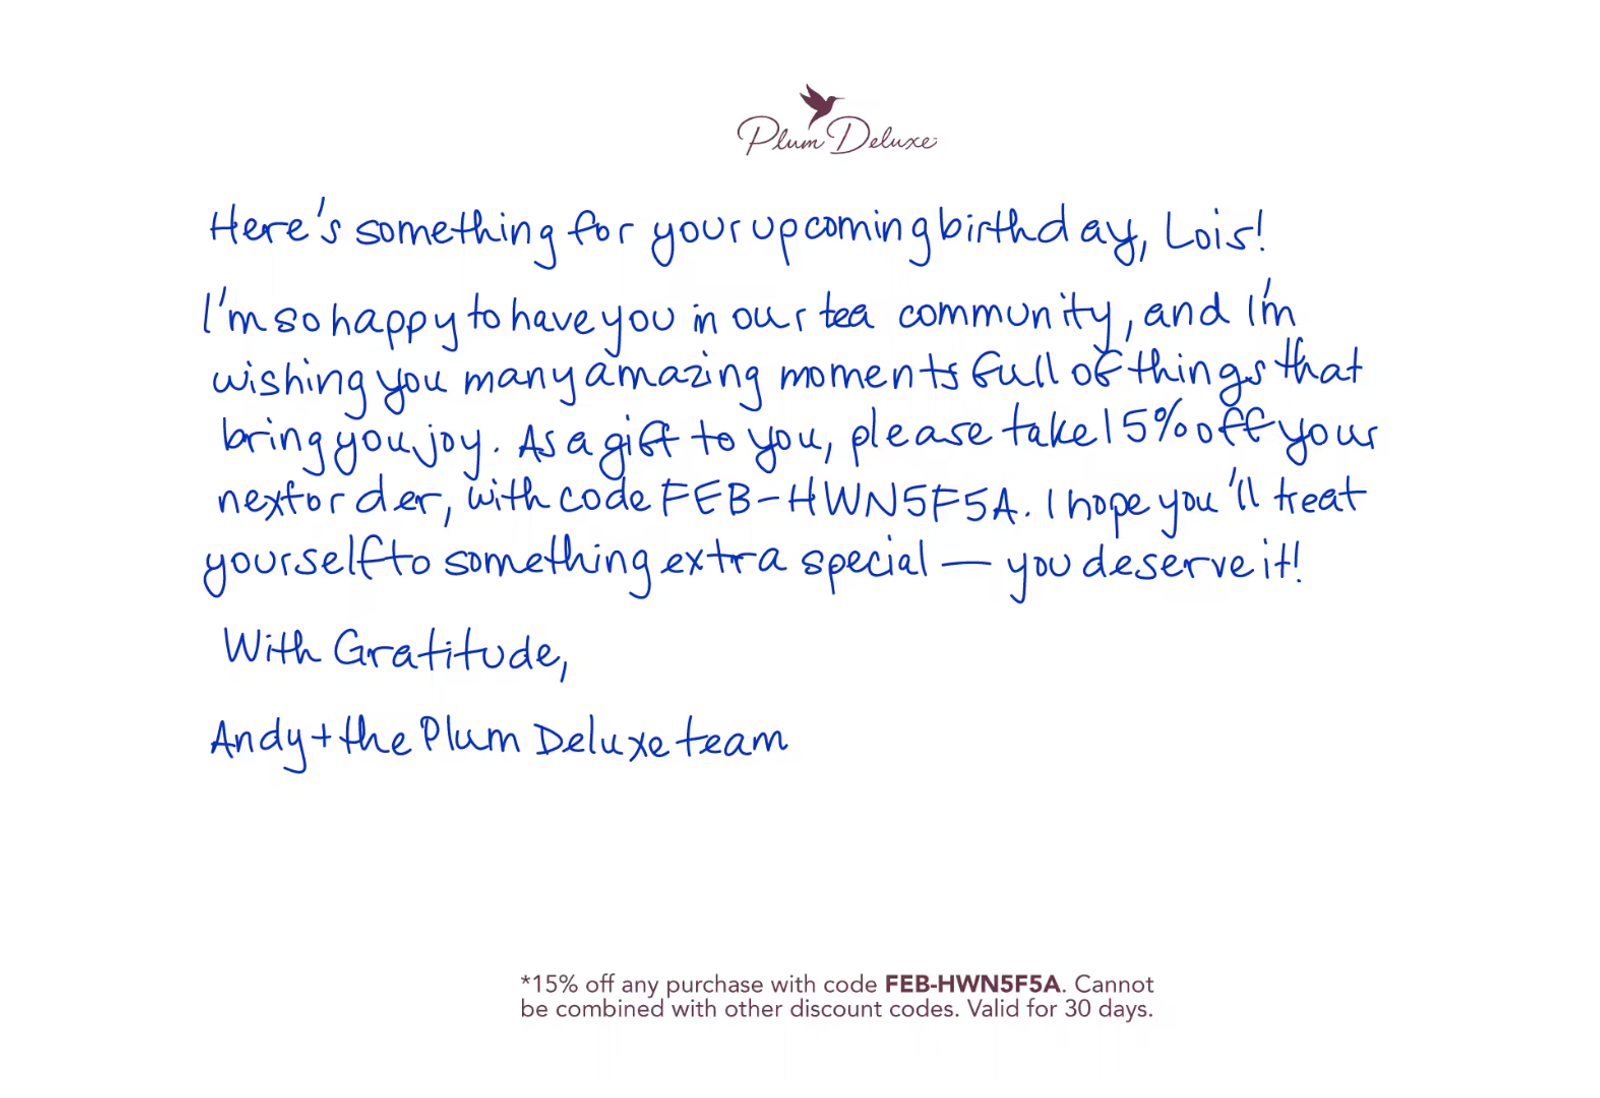 Plum Deluxe
Here's something for your upcoming birthday, Lois!
I'm so happy to have you in our tea community, and I'm
wishing you many amazing moments full of things that
bring you joy. As a gift to you, please take 15% off your
next order, with code FEB-HWN5F5A. I hope you'll treat
yourself to something extra special — you deserve it!
With Gratitude,
Andy + the Plum Deluxe team
*15% off any purchase with code FEB-HWN5F5A. Cannot
be combined with other discount codes. Valid for 30 days.